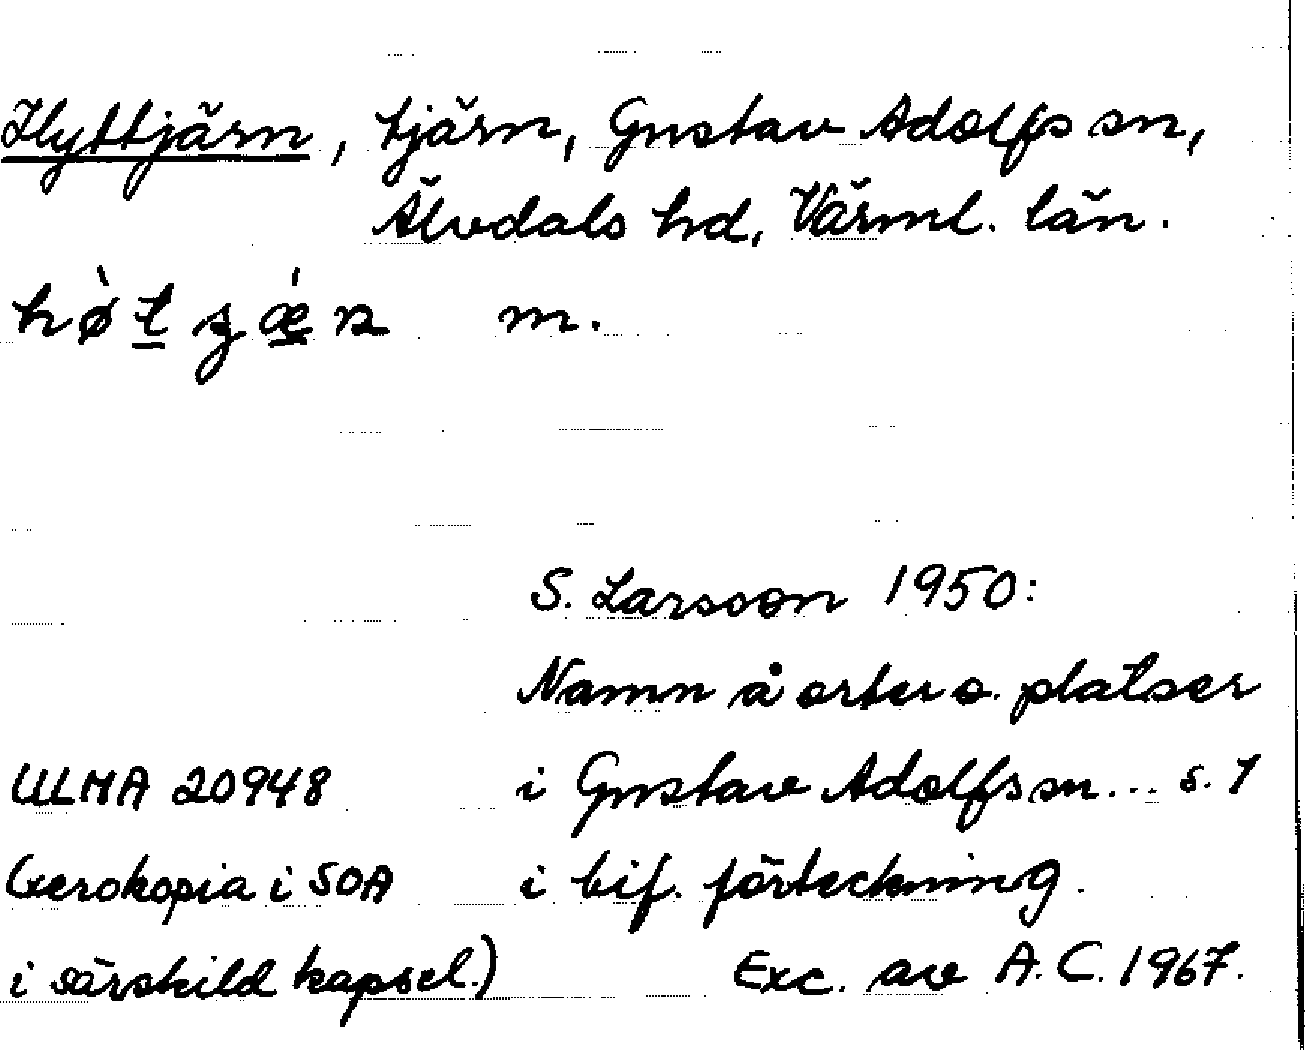 Hyttjärn, tjärn, Gustav Adolfs sn,
Älvdals hd, Värml. län.
m.
S. Larsson 1950:
Namn å orter o. platser
i Gustav Adolfs sn... s. 7
i bif. förteckning.
ULMA 20948
(xerokopia i SOA
i särskild kapsel.)
Exc. av A.C. 1967.